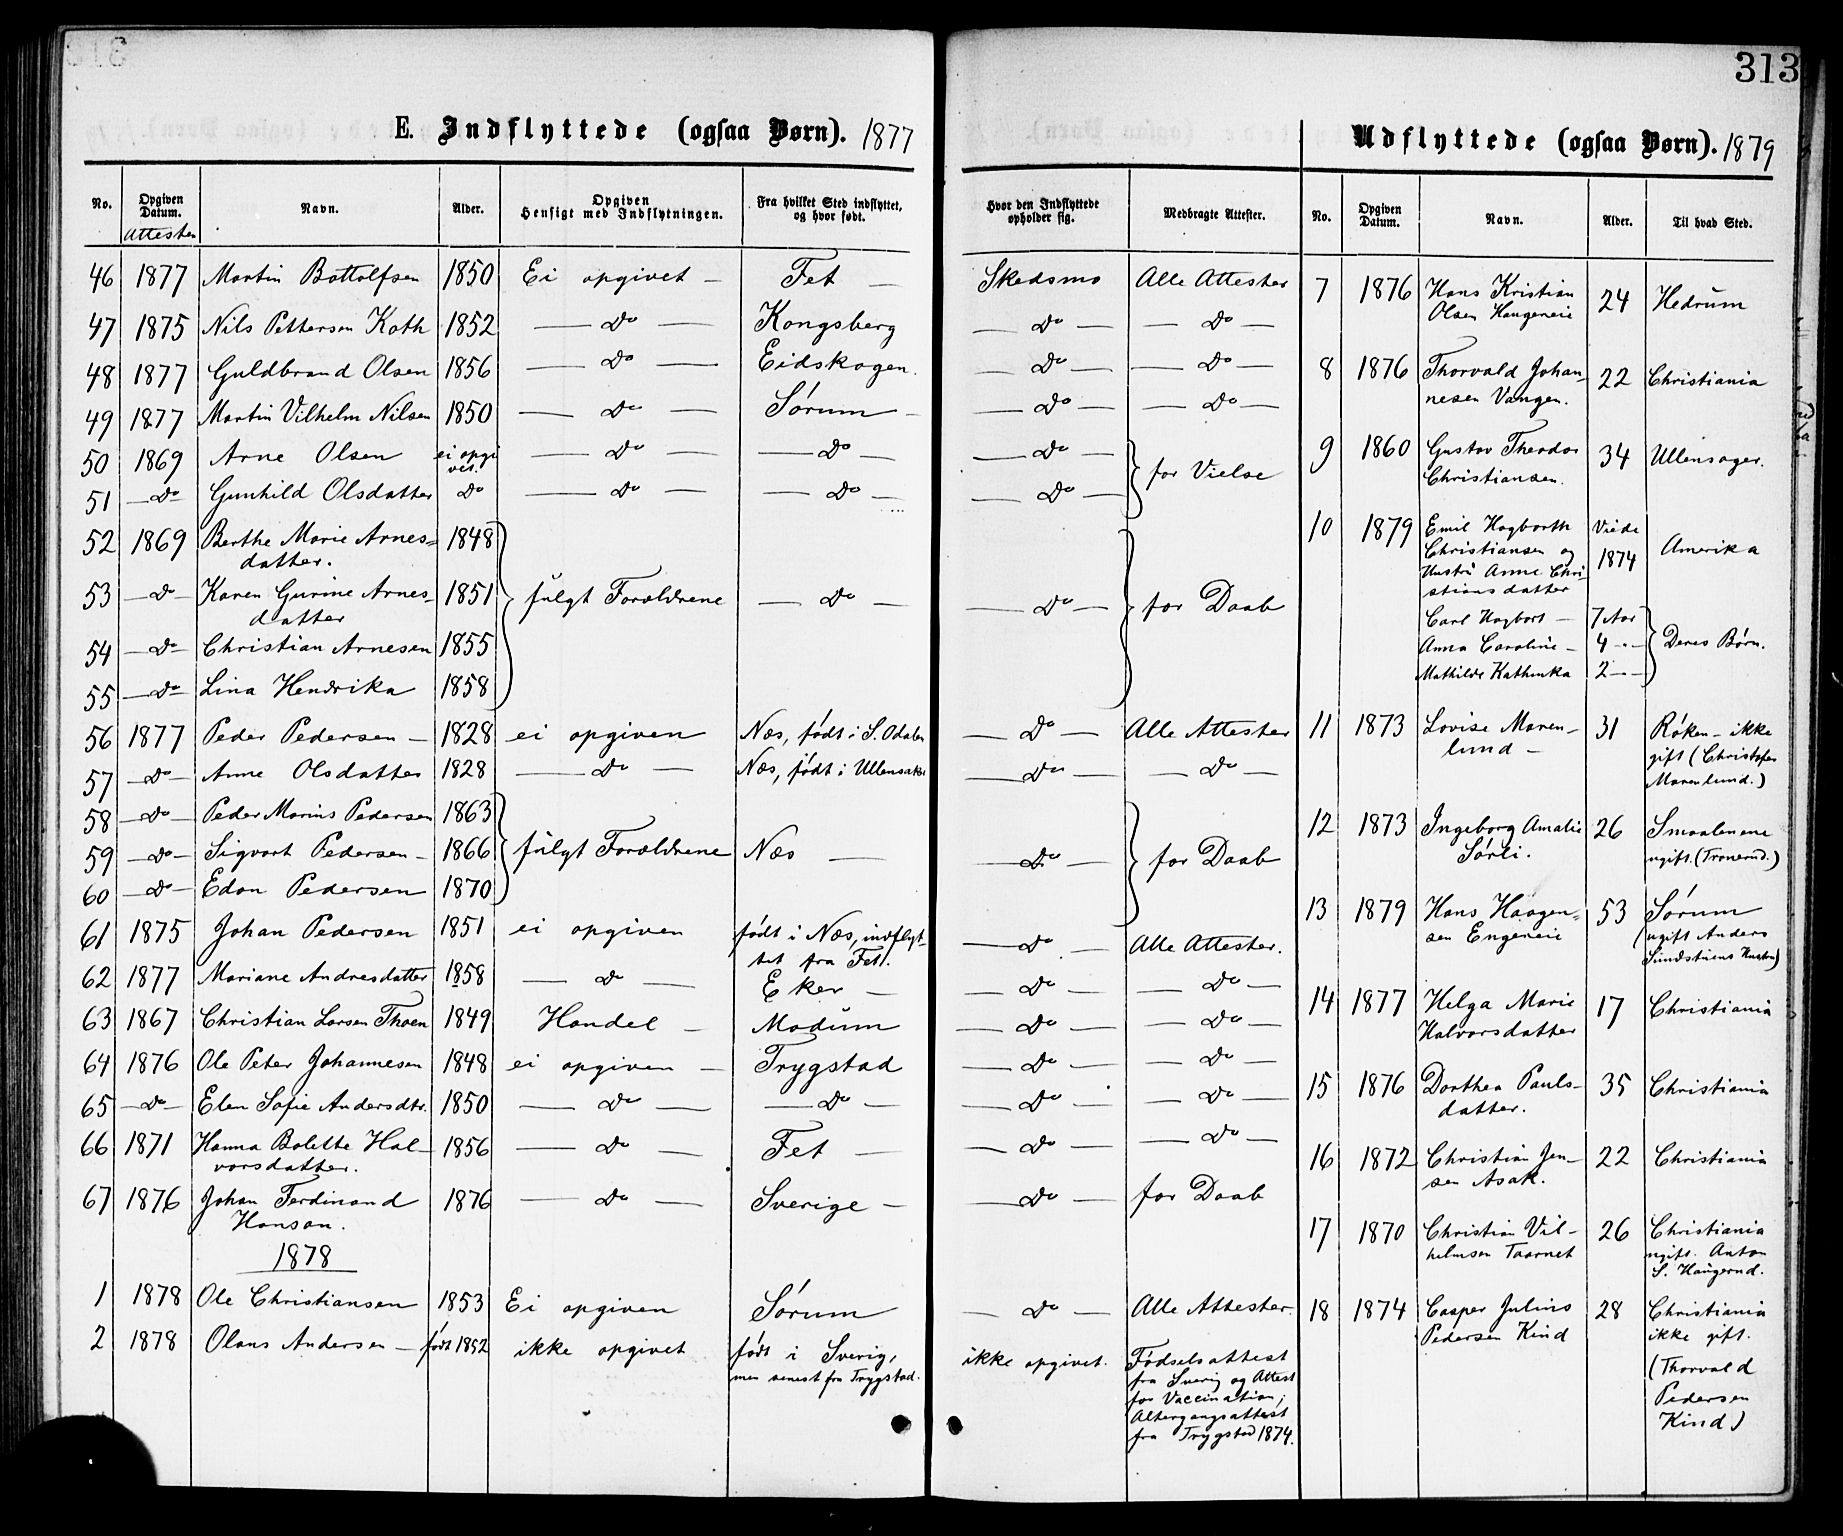 313
E. Indflyttede (ogsaa Børn). 1877
No. Opgiven Datum. Attesten Navn. Alder. Opgiven Hensigt med Indflytningen. Fra hvilket Sted indflyttet, og hvor født. Hvor den Indflyttede opholder sig. Medbragte Attester.
46 1877 Martin Bottolfsen 1850 Ei opgivet – Fet — Skedsmo Alle Attester
47 1875 Nils Pettersen Koth 1852 — Do — Kongsberg — Do — — Do —
48 1877 Guldbrand Olsen 1856 — Do — Eidskogen. — Do — — Do —
49 1877 Martin Vilhelm Nilsen 1850 — Do — Sørum — — Do — — Do —
50 1869 Arne Olsen ei opgi
vet. — Do — — Do — — Do — } for Vielse
51 — Do — Gunhild Olsdatter Do — Do — — Do — — Do —
52 1869 Berthe Marie Arnes=
datter. 1848
53 — Do — Karen Gurine Arnes-
datter 1851 } fulgt Forældrene — Do — — Do — } for Daab
54 — Do — Christian Arnesen 1855
55 — Do — Lina Hendrika 1858
56 1877 Peder Pedersen — 1828 ei opgiven Næs, født i S. Odalen — Do — Alle Attester
57 — Do — Anne Olsdatter 1828 — Do — Næs, født i Ullensaker — Do — — Do —
58 — Do — Peder Marius Pedersen 1863
59 — Do — Sigvart Pedersen – 1866 } fulgt Forældrene Næs — — Do — } for Daab
60 — Do — Edon Pedersen 1870
61 1875 Johan Pedersen 1851 ei opgiven født i Næs, indflyt-
tet fra Fet. — Do — Alle Attester.
62 1877 Mariane Andresdatter 1858 — Do — Eker — — Do — — Do —
63 1867 Christian Larsen Thoen 1849 Handel – Modum — Do — — Do —
64 1876 Ole Peter Johannesen 1848 ei opgiven – Trygstad — Do — — Do —
65 — Do — Elen Sofie Andersdtr. 1850 — Do — — Do — — Do — — Do —
66 1871 Hanna Bolette Hal-
vorsdatter. 1856 — Do — Fet — — Do — — Do —
67 1876 Johan Ferdinand
Hanson. 1876 — Do — Sverige – — Do — for Daab
1878
1 1878 Ole Christiansen 1853 Ei opgiven Sørum — Do — Alle Attester.
2 1878 Olaus Andersen — født 1852 ikke opgivet født i Sverig,
men senest fra Trygstad. ikke opgivet. Fødselsattest
fra Sverig og Attest
for Vaccination;
Altergangsattest
fra Trygstad 1874.
Udflyttede (ogsaa Børn). 1879
No. Opgiven Datum. Navn. Alder. Til hvad Sted.
7 1876 Hans Kristian
Olsen Haugeneie 24 Hedrum
8 1876 Thorvald Johan-
nesen Vangen. 22 Christiania
9 1860 Gustav Theodor
Christiansen. 34 Ullensager.
10 1879 Emil Hagbarth
Christiansen og
Hustru Anne Chri-
stiansdatter Viede
1874 Amerika
Carl Hagbart — 7 Aar
Anna Caroline – 4 – " – } Deres Børn.
Mathilde Kathinka 2 – –
11 1873 Lovise Maren-
lund – 31 Røken – ikke
gift (Christofer
Marenlund.)
12 1873 Ingeborg Amalie
Sørli. 26 Smaalenene
ugift. (Tronerud.)
13 1879 Hans Haagen=
sen Engeneie 53 Sørum
(ugift Anders
Sundstuens Hustru)
14 1877 Helga Marie
Halvorsdatter 17 Christiania
15 1876 Dorthea Pauls-
datter. 35 Christiania
16 1872 Christian Jen-
sen Asak. 22 Christiania
17 1870 Christian Vil-
helmsen Taarnet 26 Christiania
ugift. Anton
S. Haugerud.
18 1874 Casper Julius
Pedersen Kind 28 Christiania
ikke gift.
(Thorvald
Pedersen
Kind)